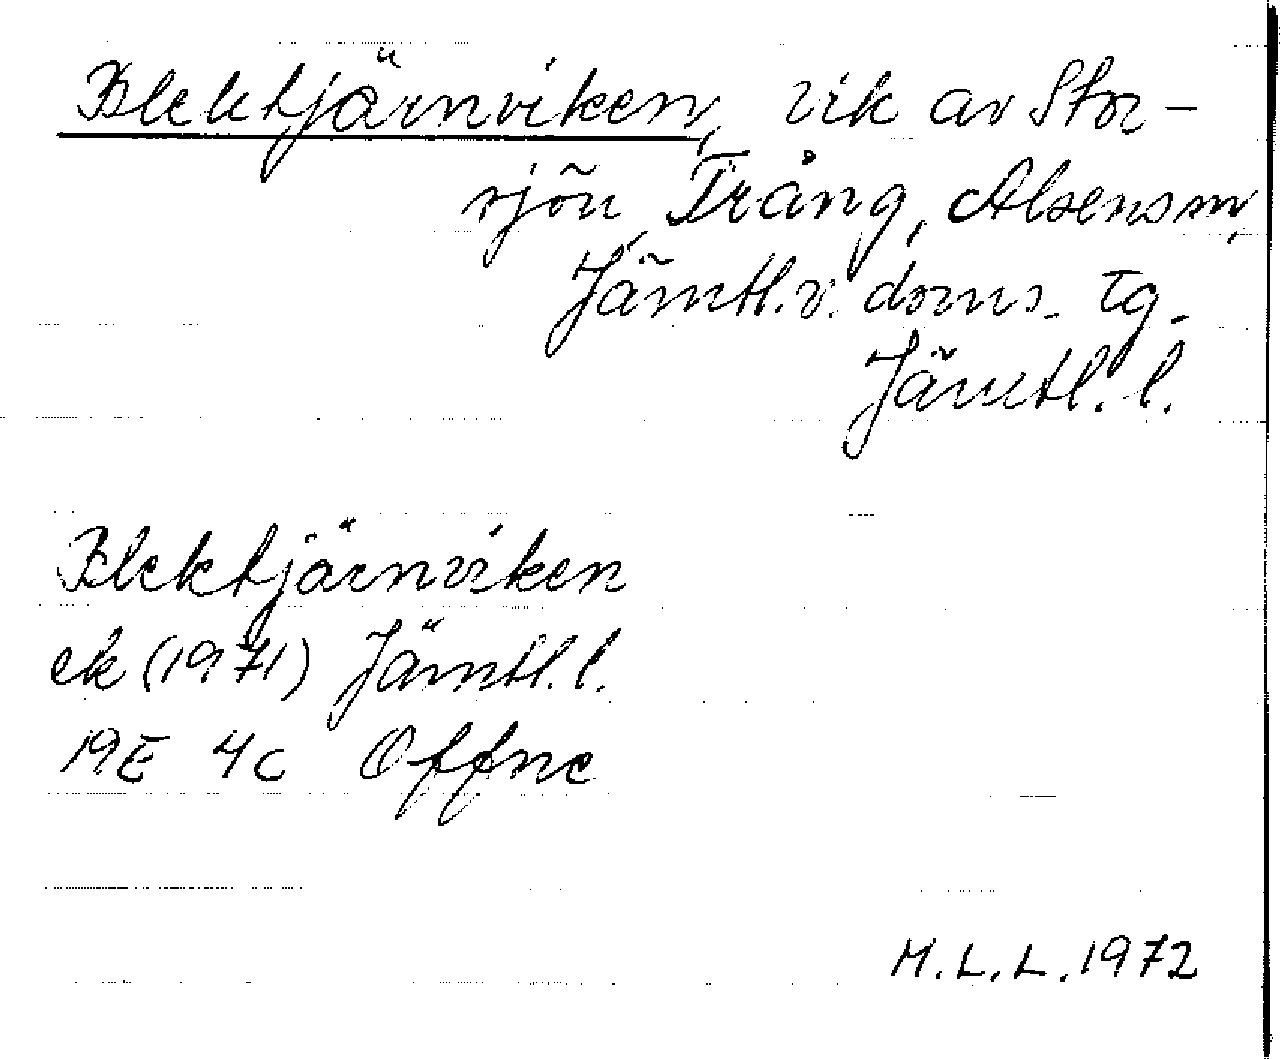 Blektjärnviken, vik av Stor-
sjön, Trång, Alsens sn,
Jämtl. v. doms. tg.
Jämtl. l.
Blektjärnviken
ek (1971) Jämtl. l.
19E 4c Offne
M.L.L. 1972